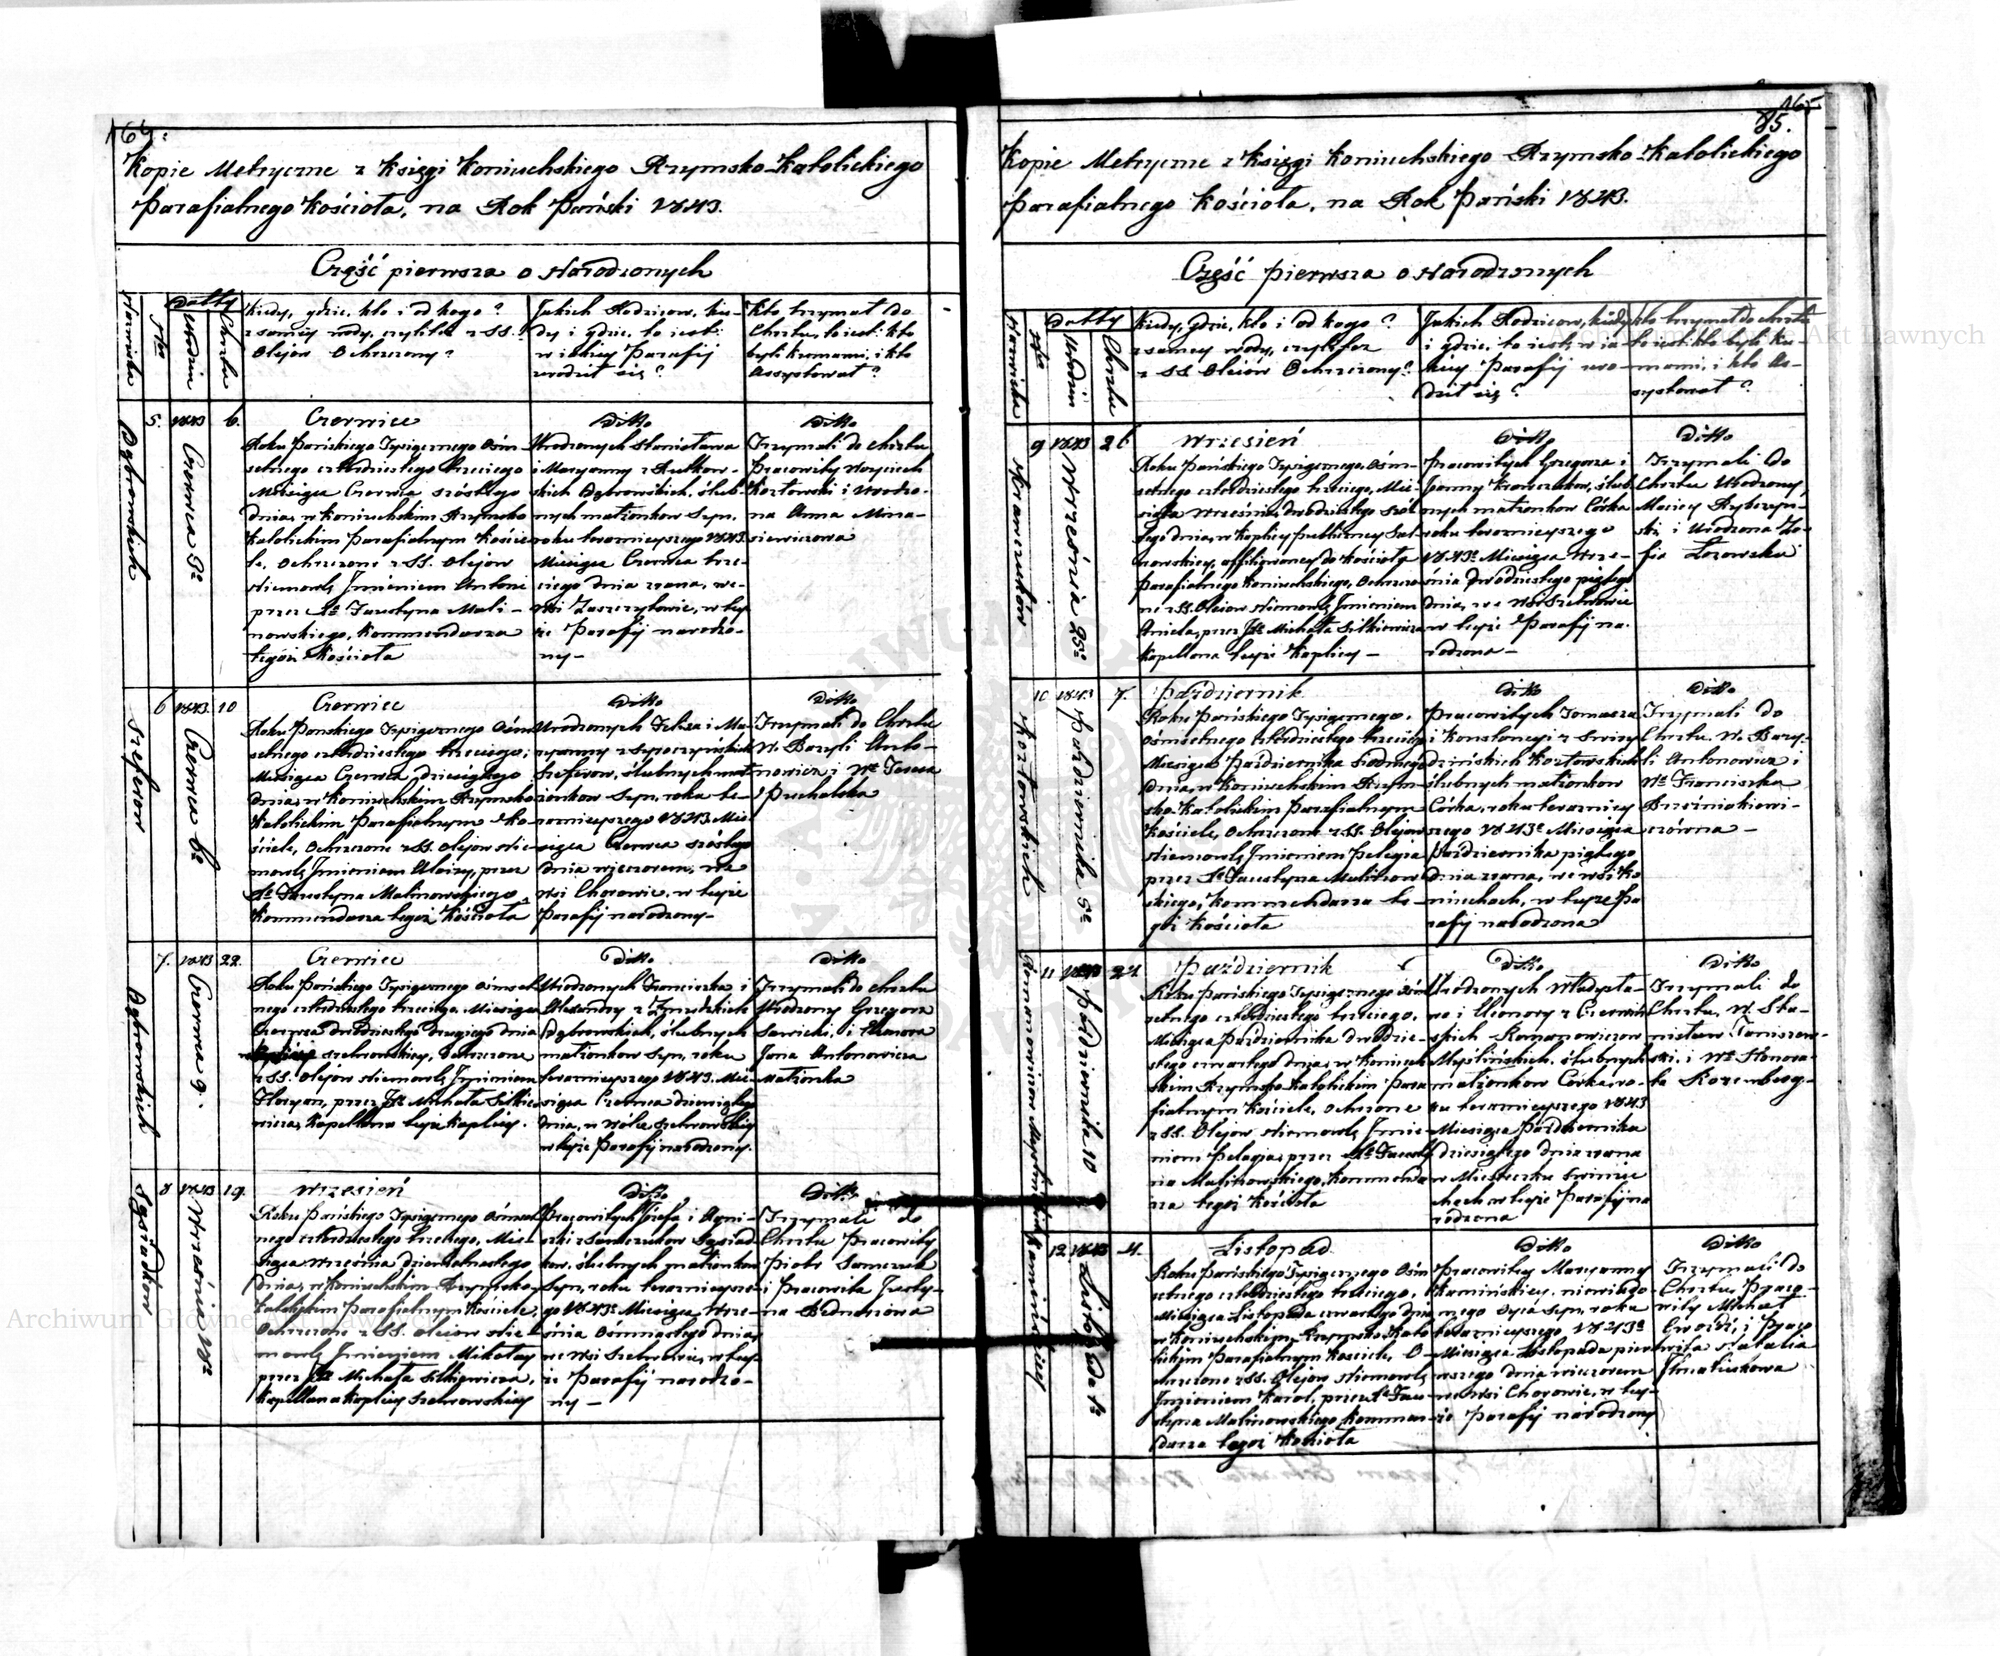 164.
Kopie Metryczne z Księgi Koniuchskiego Rzymsko-Katolickiego
Parafialnego Kościoła, na Rok Pański 1843.
Część pierwsza o Narodzonych
Nazwiska
Nro
Datty
Urodzin
Chrztu
Kiedy, gdzie, kto i od kogo?
z samey wody, czyli też z SS.
Olejów Ochrzczony?
Jakich Rodziców, kie-
dy i gdzie, to iest:
w iakiey Parafij
urodził się?
Kto trzymał do
Chrztu, to iest: kto
byli kumami, i kto
Assystował?
Dąbrowskich
5.
1843
Czerwca 3º
6.
Czerwiec
Roku Pańskiego Tysiącznego Ośm-
setnego czterdziestego trzeciego
Miesiąca Czerwca szóstego
dnia, w Koniuchskim Rzymsko
Katolickim Parafialnym Koście-
le, Ochrzczone z SS. Olejów
Niemowle Jmieniem Antoni
przez Xº Faustyna Mali-
nowskiego, Kommendarza
tegóż Kościoła
Ditto
Urodzonych Stanisława
i Maryanny z Rutkow-
skich Dąbrowskich, ślub-
nych małżonków Syn,
roku teraznieyszego 1843.
Miesiąca Czerwca trze-
ciego dnia zrana, we
Wsi Zaszczytowie, w tey
że Parafij narodzo-
ny —
Ditto
Trzymali do chrztu
Pracowity Woyciech
Kozłowski i Urodzo-
na Anna Mina-
siewiczowa
Szeferow
6
1843.
Czerwca 6º
10
Czerwiec
Roku Pańskiego Tysiącznego Ośm
setnego czterdziestego trzeciego,
Miesiąca Czerwca dziesiątego
dnia, w Koniuchskim Rzymsko
Katolickim Parafialnym Ko-
ściele, Ochrzczone z SS. Olejow Nie
mowle Jmieniem Aloizy, przez
Xº Faustyna Malinowskiego,
Kommendarza tegoż Kościoła
Ditto
Urodzonych Felixa i Ma-
ryanny z Syroczyńskich
Szeferow, ślubnych mał
żonkow Syn, roku te-
raznieyszego 1843 Mie-
siąca Czerwca szóstego
dnia wieczorem, we
Wsi Chorowie, w teyże
Parafij narodzony—
Ditto
Trzymali do Chrztu
W. Bazyli Anto-
nowicz i Wª Teresa
Puchalska
Dąbrowskich
7.
1843
Czerwca 9.
22.
Czerwiec
Roku Pańskiego Tysiącznego ośmset
nego czterdziestego trzeciego, Miesiąca
Czerwca dwudziestego drugiego dnia
Szelwowskiey, Ochrzczone
z SS. Olejów Niemowle Jmieniem
Floryan, przez Xº Michała Sitkie
wicza, Kapellana teyże Kaplicy.
Ditto
Urodzonych Franciszka i
Alexandry z Żmudzkich
Dąbrowskich, ślubnych
małżonkow Syn, roku
teraznieyszego 1843. Mie-
siąca Czerwca dziewiątego
dnia, w Wólce Szelwowskiey
w teyże Parafij narodzony.
Ditto
Trzymali do chrztu
Urodzony Grzegorz
Sawicki, i Eleonora
Jana Antonowicza
Małżonka
Sąsiadków
8
1843
Września 18º
19.
Wrzesień
Roku Pańskiego Tysiącznego Ośmset
nego czterdziestego trzeciego, Mie-
siąca Września dziewiętnastego
dnia, w Koniuchskim Rzymsko
Katolickim Parafialnym Kościele,
Ochrzczone z SS. Olejow Nie-
mowle Jmieniem Mikołay
przez Xº Michała Sitkiewicza,
Kapellana Kaplicy Szelwowskiey
Ditto
Pracowitych Józefa i Agni-
szki z Samczukow Sąsiad
kow, ślubnych małżonkow
Syn, roku teraznieysze-
go 1843º Miesiąca Wrze-
śnia Ośmnastego dnia,
we Wsi Szelwowie, w tey-
że Parafij narodzo-
ny —
Ditto
Trzymali do
Chrztu Pracowity
Piotr Samczuk
i Pracowita Justy-
na Bednarzowa
165
85.
Kopie Metryczne z Księgi Koniuchskiego Rzymsko-Katolickiego
Parafialnego Kościoła, na Rok Pański 1843.
Część pierwsza o Narodzonych
Nazwiska
Datty
Urodzin
Chrztu
Kiedy, gdzie, kto i od kogo?
z samey wody, czyli też
z SS. Olejów Ochrzczony?
Jakich Rodzicow, kiedy
i gdzie, to iest, w ia-
kiey Parafij uro-
dził się?
Kto trzymał do chrztu
to iest: kto byli ku-
mami, i kto As-
systował?
Krawczuków
9
1843
Września 25º
26
Wrzesień
Roku Pańskiego Tysiącznego, Ośm-
setnego czterdziestego trzeciego, Mie-
siąca Września, dwódziestego szós-
tego dnia, w Kaplicy publiczney Szel-
wowskiey, affiliowaney do Kościoła
Parafialnego Koniuchskiego, Ochrzczo-
ne z SS. Olejow Niemowle Jmieniem
Aniela, przez Xº Michała Sitkiewicza
Kapellana teyże Kaplicy —
Ditto
Pracowitych Grzegorza i
Joanny Krawczukow, ślub-
nych małżonkow Córka
roku teraznieyszego
1843º Miesiąca Wrze-
śnia dwódziestego piątego
dnia, we Wsi Szelwowie
w teyże Parafij na-
rodzona —
Ditto
Trzymali do
Chrztu Urodzony
Maciey Rybczyń-
ski i Urodzona Zo-
fia Łozowska
Kozłowskich
10
1843
Października 5º
7.
Październik
Roku Pańskiego Tysiącznego,
Ośmsetnego czterdziestego trzeciego
Miesiąca Października siódmego
dnia, w Koniuchskim Rzym-
sko-Katolickim Parafialnym
Kościele, Ochrzczone z SS. Olejow
Niemowle Jmieniem Pelagia
przez Xº Faustyna Malinow
skiego, Kommendarza te-
goż Kościoła
Ditto
Pracowitych Tomasza
i Konstancyi z Swiey
dzińskich Kozłowskich
ślubnych małżonkow
Córka, roku terazniey
szego 1843º Miesiąca
Października piątego
dnia zrana, we wsi Ko-
niuchach, w teyże Pa
rafij narodzona
Ditto
Trzymali do
Chrztu W. Bazy-
li Antonowicz i
Wª Franciszka
czówna —
11
1843
Października 10
24.
Październik
Roku Pańskiego Tysiącznego Ośm
setnego czterdziestego trzeciego,
Miesiąca Października dwódzie-
stego czwartego dnia, w Koniuch
skim Rzymsko-Katolickim Para
fialnym Kościele, Ochrzczone
z SS. Olejow Niemowle Jmie-
niem Pelagia, przez Xº Fausty
na Malinowskiego, Kommenda
rza tegoż Kościoła
Ditto
Urodzonych Władysła-
wa i Eleonory z Czerwiń
skich Romanowiczow
Myślińskich, ślubnych
małżonkow Córka, ro-
ku teraznieyszego 1843
Miesiąca Października
dziesiątego dnia zrana
w Miasteczku Swiniu
chach w teyże Parafij na
rodzona
Ditto
Trzymali do
Chrztu, W. Sta-
nisław Tomiszew-
ski i Wª Honora-
ta Rozenberg—
Kamińskiey
12.
1843
Listopada 1º
4.
Listopad
Roku Pańskiego Tysiącznego Ośm
setnego czterdziestego trzeciego,
Miesiąca Listopada czwartego dnia
w Koniuchskim Rzymsko-Kato
lickim Parafialnym Kościele, O-
chrzczone z SS. Olejow Niemowle
Jmieniem Karol, przez Xº Fau-
styna Malinowskiego Kommen-
darza tegoż Kościoła
Ditto
Pracowitey Maryanny
Kamińskiey, niewiado-
mego Oyca Syn, roku
teraznieyszego 1843º
Miesiąca Listopada pier
wszego dnia wieczorem
we Wsi Chorowie, w tey-
że Parafij narodzony
Ditto
Trzymali do
Chrztu, Praco-
wity Michał
Gwoźdź, i Praco
wita Natalia
Archiwum Główne Akt Dawnych